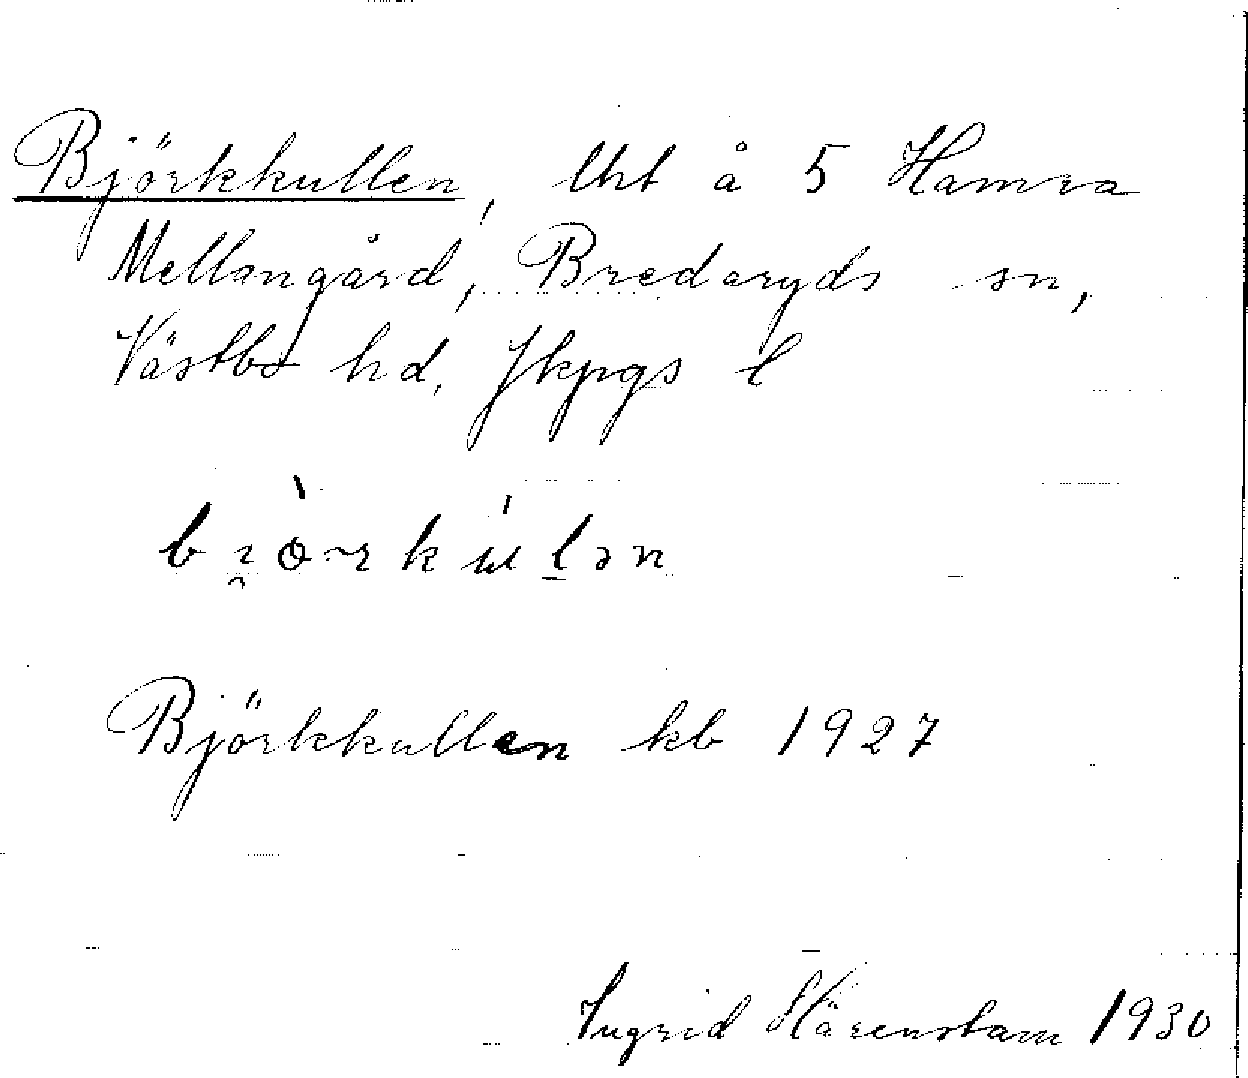 Björkkullen, lht å 5 Hamra
Mellangård, Bredaryds sn,
Västbo hd, Jkpgs l
Björkkullen kb 1927
Ingrid Härenstam 1930